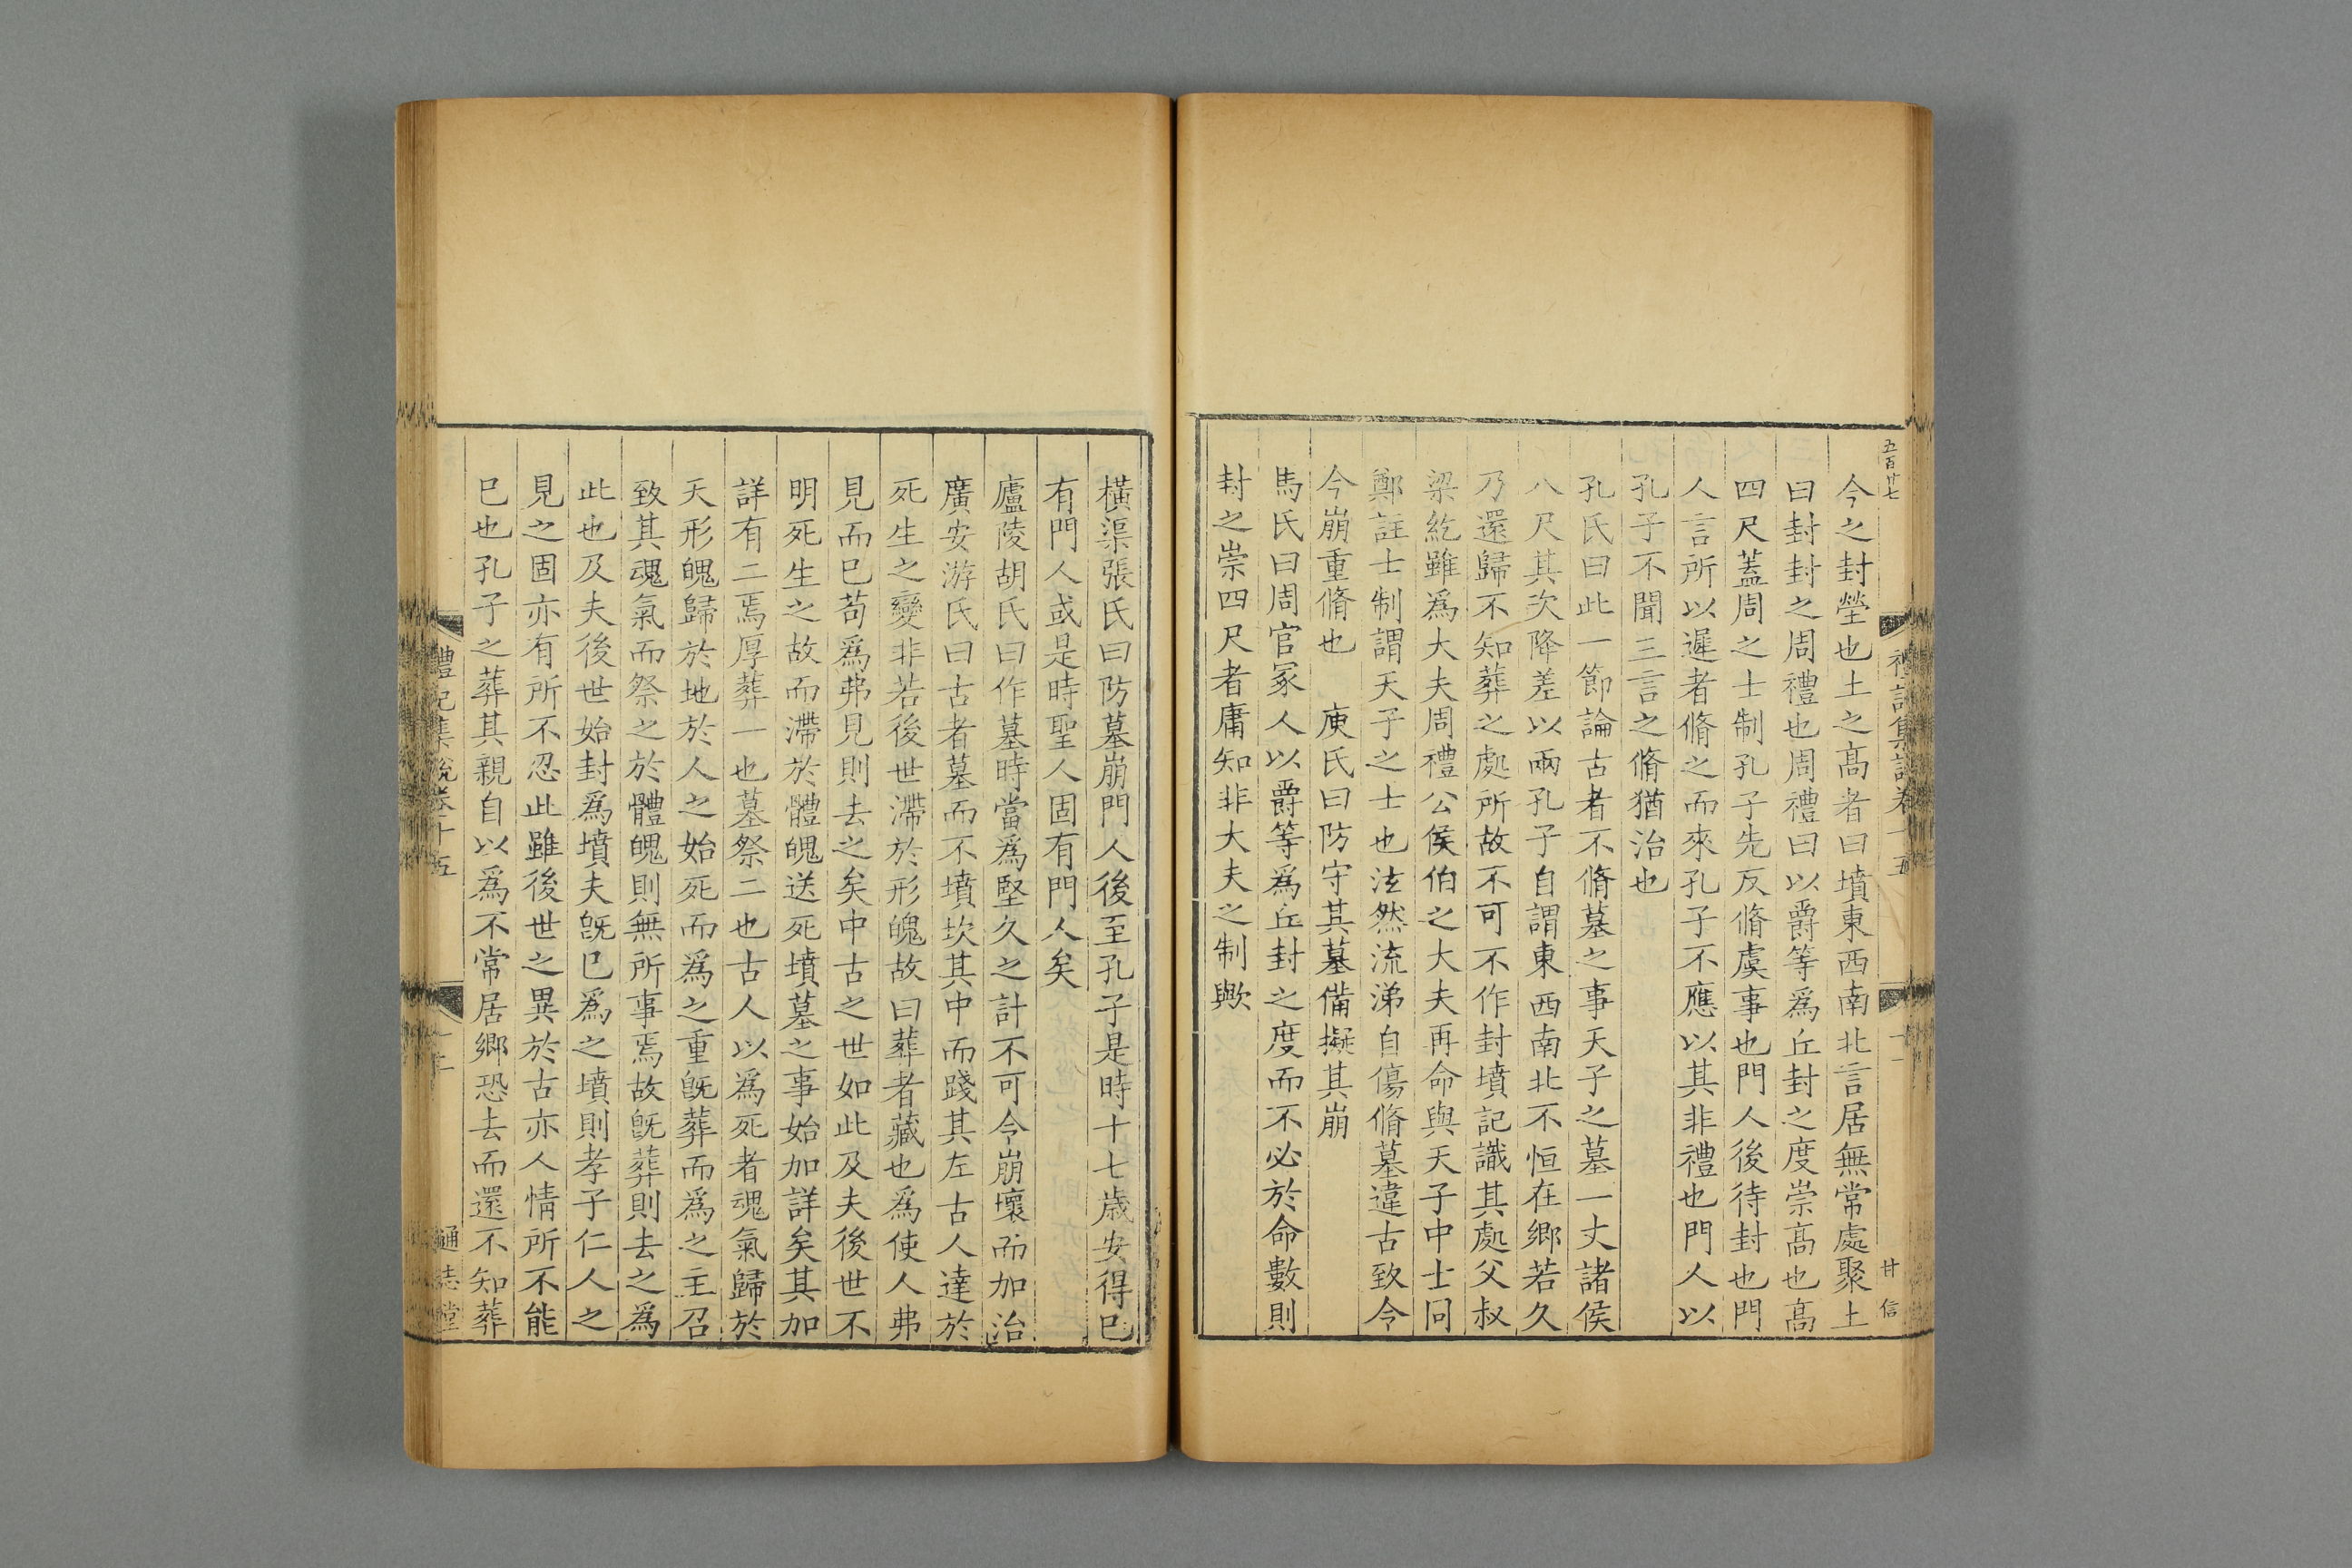 五百廿七
禮記集說卷十五
十一
甘信
今之封塋也土之髙者曰墳東西南北言居無常處聚土
曰封封之周禮也周禮曰以爵等為丘封之度崇髙也髙
四尺蓋周之士制孔子先反脩虞事也門人後待封也門
人言所以遲者脩之而來孔子不應以其非禮也門人以
孔子不聞三言之脩猶治也
孔氏曰此一節論古者不脩墓之事天子之墓一丈諸侯
八尺其次降差以兩孔子自謂東西南北不恒在鄉若久
乃還歸不知葬之處所故不可不作封墳記識其處父叔
梁紇雖為大夫周禮公侯伯之大夫再命與天子中士同
鄭註士制謂天子之士也泫然流涕自傷脩墓違古致令
今崩重脩也　庾氏曰防守其墓備擬其崩
馬氏曰周官冢人以爵等為丘封之度而不必於命數則
封之崇四尺者庸知非大夫之制歟
橫渠張氏曰防墓崩門人後至孔子是時十七歲安得已
有門人或是時聖人固有門人矣
廬陵胡氏曰作墓時當為堅久之計不可今崩壞而加治
廣安游氏曰古者墓而不墳坎其中而踐其左古人達於
死生之變非若後世滯於形魄故曰葬者藏也為使人弗
見而已苟為弗見則去之矣中古之世如此及夫後世不
明死生之故而滯於體魄送死墳墓之事始加詳矣其加
詳有二焉厚葬一也墓祭二也古人以為死者魂氣歸於
天形魄歸於地於人之始死而為之重旣葬而為之主召
致其魂氣而祭之於體魄則無所事焉故旣葬則去之為
此也及夫後世始封為墳夫旣已為之墳則孝子仁人之
見之固亦有所不忍此雖後世之異於古亦人情所不能
已也孔子之葬其親自以為不常居鄉恐去而還不知葬
禮記集說卷十五
十二
通志堂